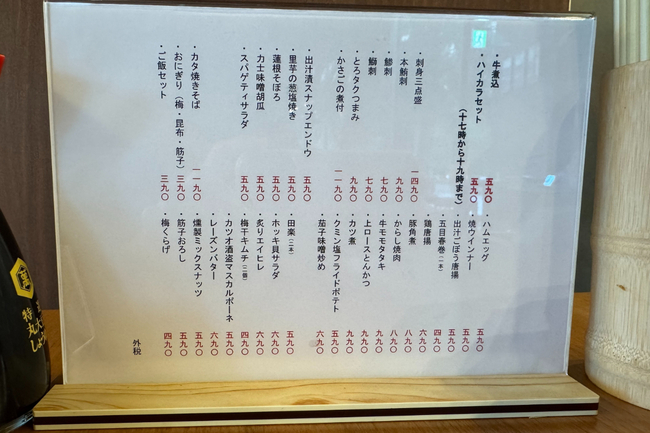 ・牛煮込 五九〇
・ハイカラセット 五九〇
(十七時から十九時まで)
・刺身三点盛 一四九〇
・本鮪刺 九九〇
・鯵刺 七九〇
・鰤刺 七九〇
・とろタクつまみ 九九〇
・かさごの煮付 一一九〇
・出汁漬スナップエンドウ 五九〇
・里芋の葱塩焼き 五九〇
・蓮根そぼろ 五九〇
・力士味噌胡瓜 五九〇
・スパゲティサラダ 五九〇
・カタ焼きそば 一一九〇
・おにぎり（梅・昆布・筋子） 三九〇
・ご飯セット 三九〇
・ハムエッグ 五九〇
・焼ウインナー 五九〇
・出汁ごぼう唐揚 五九〇
・五目春巻(一本) 四九〇
・鶏唐揚 六九〇
・豚角煮 八九〇
・からし焼肉 八九〇
・牛モモタタキ 九九〇
・上ロースとんかつ 九九〇
・カツ煮 九九〇
・クミン塩フライドポテト 五九〇
・茄子味噌炒め 六九〇
・田楽(二本) 五九〇
・ホッキ貝サラダ 六九〇
・炙りエイヒレ 六九〇
・梅干キムチ(二個) 四九〇
・カツオ酒盗マスカルポーネ 五九〇
・レーズンバター 六九〇
・燻製ミックスナッツ 五九〇
・筋子おろし 五九〇
・梅くらげ 四九〇
外税
特
丸大
しょ